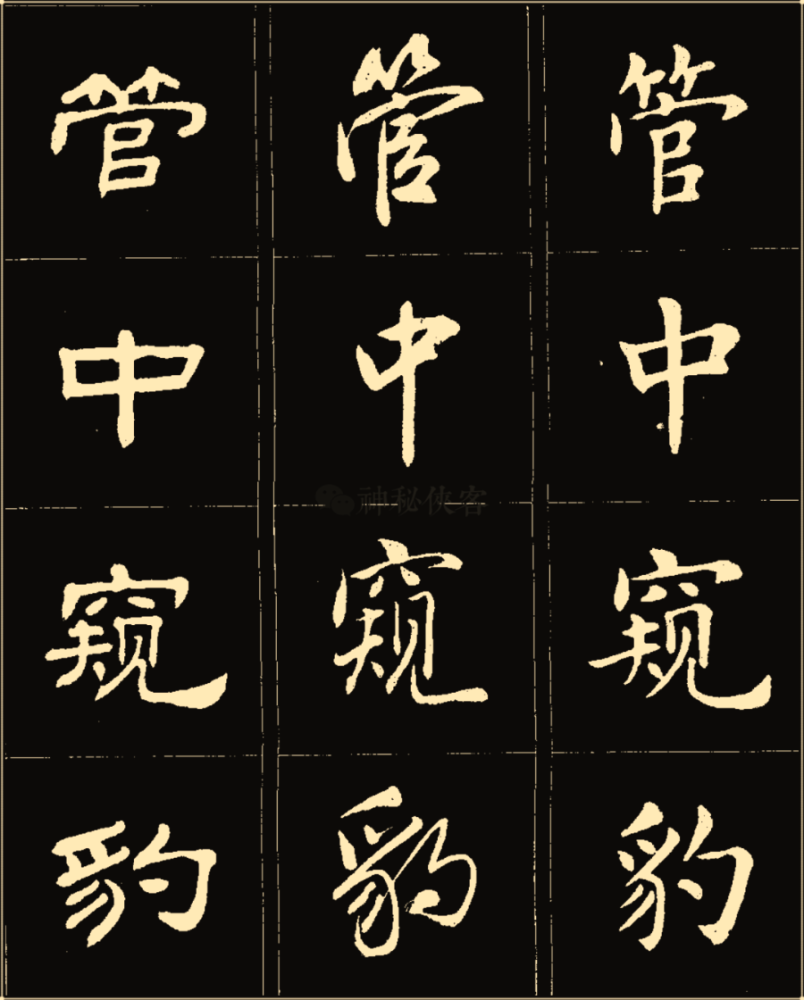 管中窥豹
管中窥豹
管中窥豹
神秘侠客